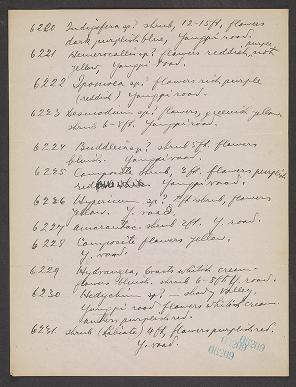 6220 Indigofera sp? shrub, 12-15ft, flowers
dark purplish blue, Youngpi road.
6221 Hemerocallis sp? flowers reddish, rich purple
yellow, Youngpi road.
6222 Ipomoea sp? flowers rich purple
(reddish) Youngpi road.
6223 Desmodium sp, flowers, greenish yellow
shrub 6-8ft. Youngpi road.
6224 Buddleia sp? shrub 5ft flowers
bluish. Youngpi road.
6225 Composite shrub, 2ft. flowers purplish
red Youngpi road.
6226 Hypericum sp? 2ft shrub, flowers
yellow. Y. road.
6227 Amarantac. shrub 2ft. Y. road.
6228 Composite flowers yellow,
Y. road.
6229 Hydrangea, bracts whitish cream
flowers bluish. shrub 6-8ft Y. road.
6230 Hedychium sp? - shady valley,
Youngpi road flowers whitish cream
anthers purplish red.
6231 shrub (Labiate) 4ft, flowers purplish red.
Y. road.
00209
00209